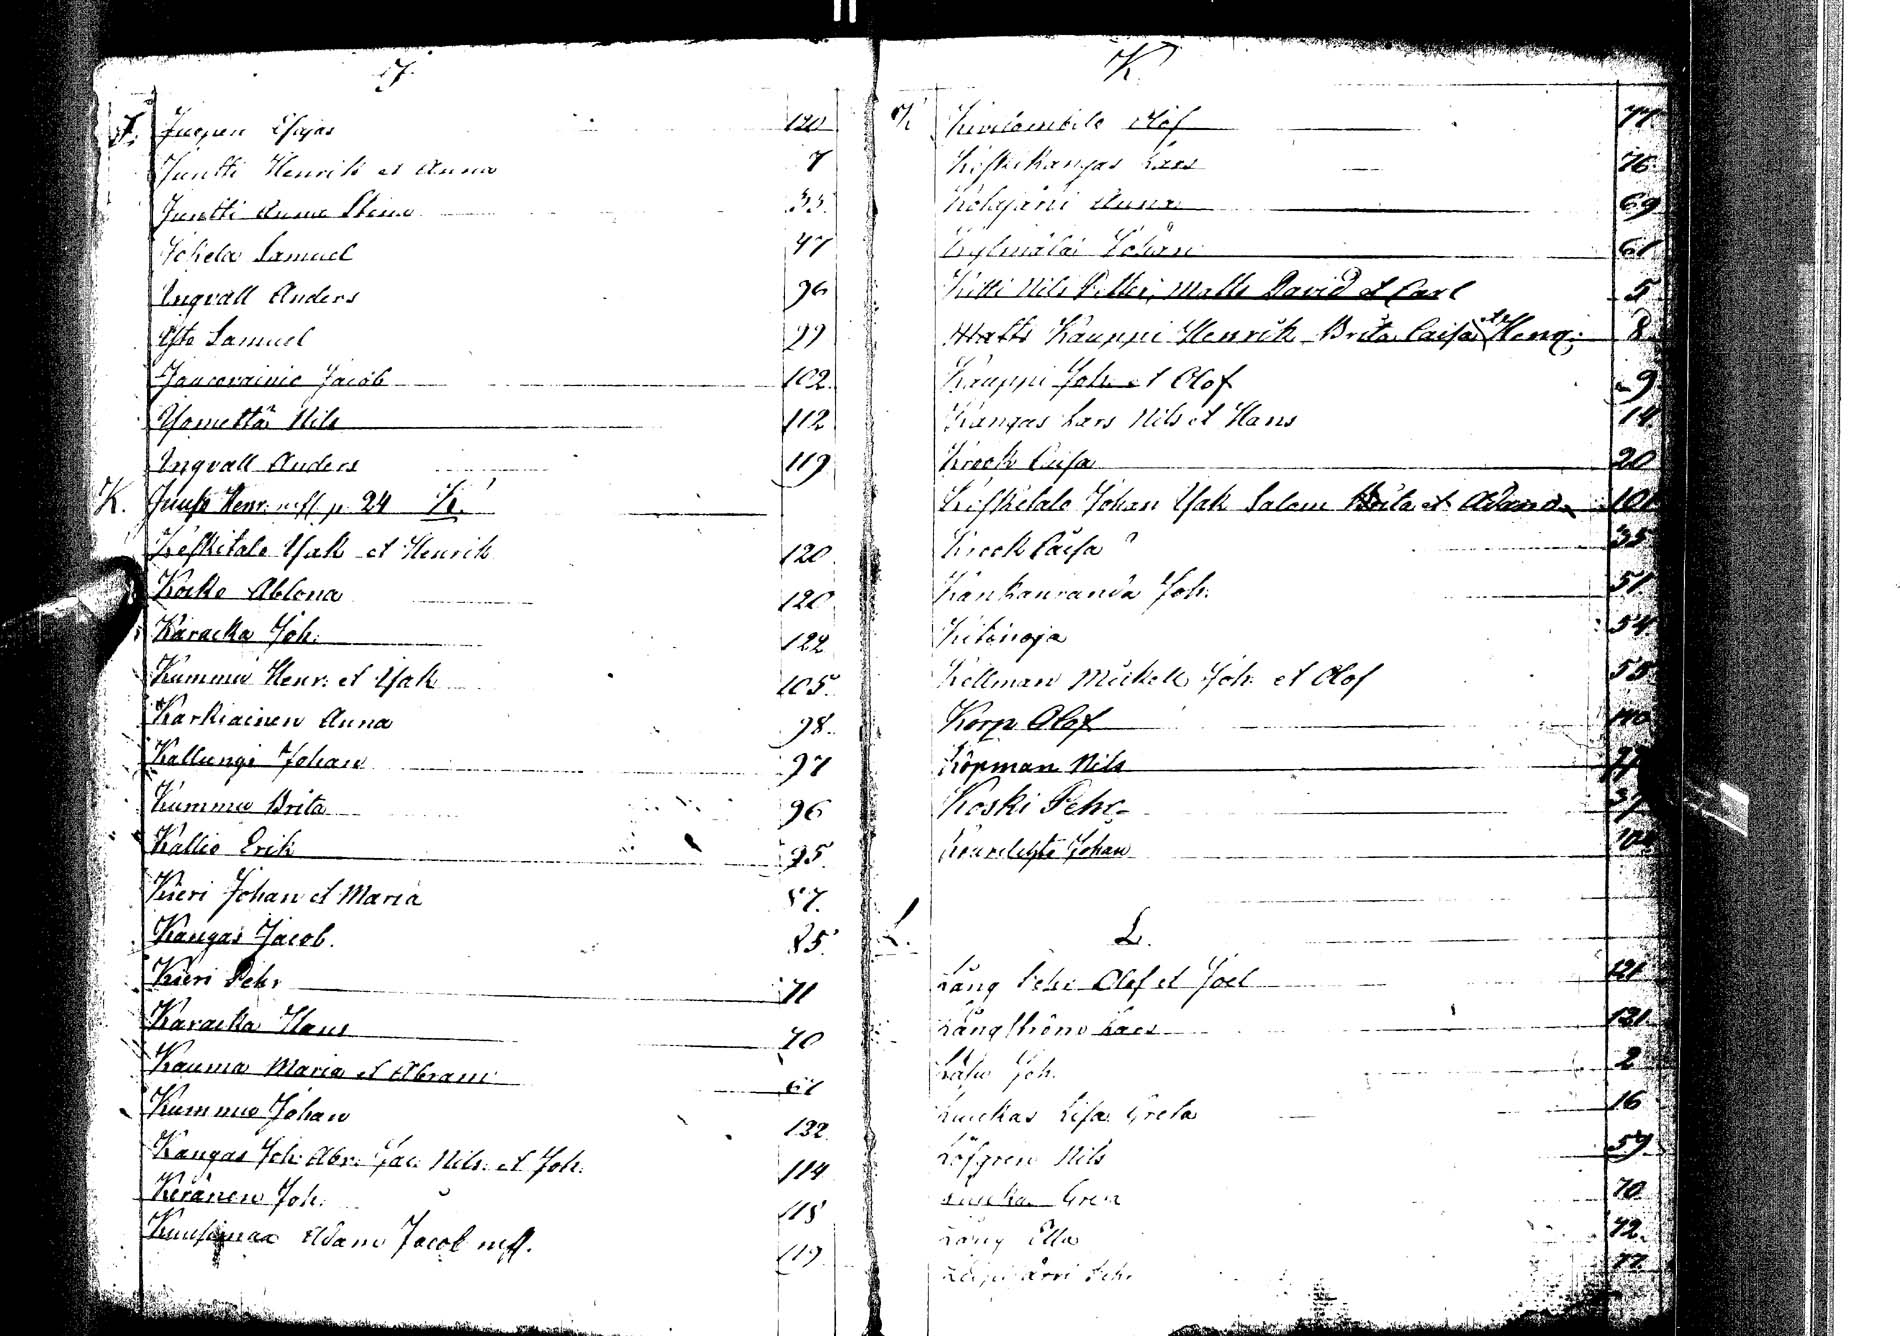 J.
J. Juopen Esajas 120
Juntti Henrik et Anna 7
Juntti Anna Stina 33
Johela Samuel 47
Ingvall Anders 96
Samuel 99
Jacob 102
Nils 112
Ingvall Anders 119
K. Juuso Henr. m.fl. p. 24 K.
Keskitalo Isak et Henrik 120
Koski Ablona 120
Karacka Joh. 122
Kummu Henr. et Isak 105.
Karkiainen Anna 98.
Kallungi Johan 97
Kummu Brita 96
Kallio Erik 95.
Kieri Johan et Maria 87.
Kangas Jacob. 85.
Kieri Pehr 71
Karacka Hans 70
Kauma Maria et Abram 61
Kummu Johan 132
Kangas Joh. Abr. Jac. Nils. et Joh. 114
Keränen Joh. 118
Adam Jacob mfl. 119
K
K Kivilombolo Olof 77
Keskikangas Lars 76
Kohijäni Anna 69
Kylmälä Johan 61
Kitti Nils Petter, Matts David et Carl 5
Kauppi Henrik Brita Caisa et Henr: 8
Kauppi Joh. et Olof 9
Kangas Lars Nils et Hans 14
Krook Caisa 20
Keskitalo Johan Isak Salom Brita et Adam 101
Krook Caisa 35
Kankanranda Joh. 51
Kitönoja 54
Kellman Mickell Joh. et Olof 55
Korp Olof 110
Köpman Nils
Koski Pehr
Johan 104
L. L.
Lång Pehr Olof et Joel 121
Långström Lars 131
Joh. 2
Luickas Lisa Greta 16
Löfgren Nils 59
Greta 70
Lång Ella 72.
Pehr 77